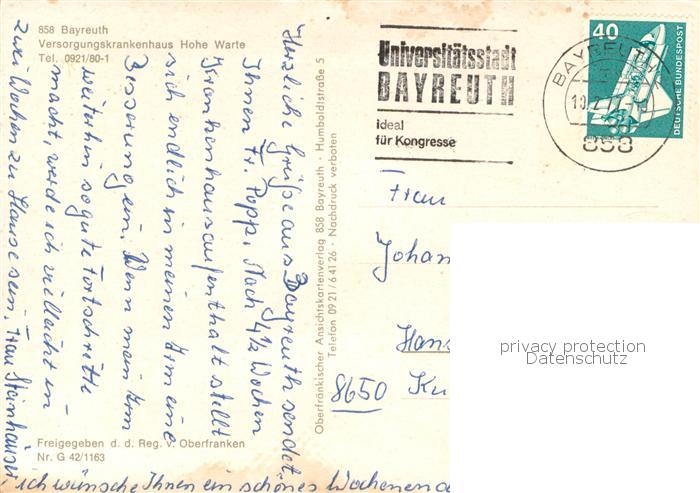 858 Bayreuth
Versorgungskrankenhaus Hohe Warte
Tel. 0921/80-1
Herzliche Grüße aus Bayreuth sendet
Ihnen Fr. Popp. Nach 4½ Wochen
Krankenhausaufenthalt stellt
sich endlich in meinen Arm eine
Besserung ein. Wenn mein Arm
weiterhin so gute Fortschritte
macht, werde ich vielleicht in
zwei Wochen zu Hause sein. Frau Steinhäuser,
ich wünsche Ihnen ein schönes Wochenend
Freigegeben d. d. Reg. v. Oberfranken
Nr. G 42/1163
Oberfränkischer Ansichtskartenverlag 858 Bayreuth · Humboldtstraße 5
Telefon 0921/64126 · Nachdruck verboten
Universitätsstadt
BAYREUTH
ideal
für Kongresse
BAYREUTH
858
40
DEUTSCHE BUNDESPOST
Frau
Johan
Hans
8650 Ku
privacy protection
Datenschutz